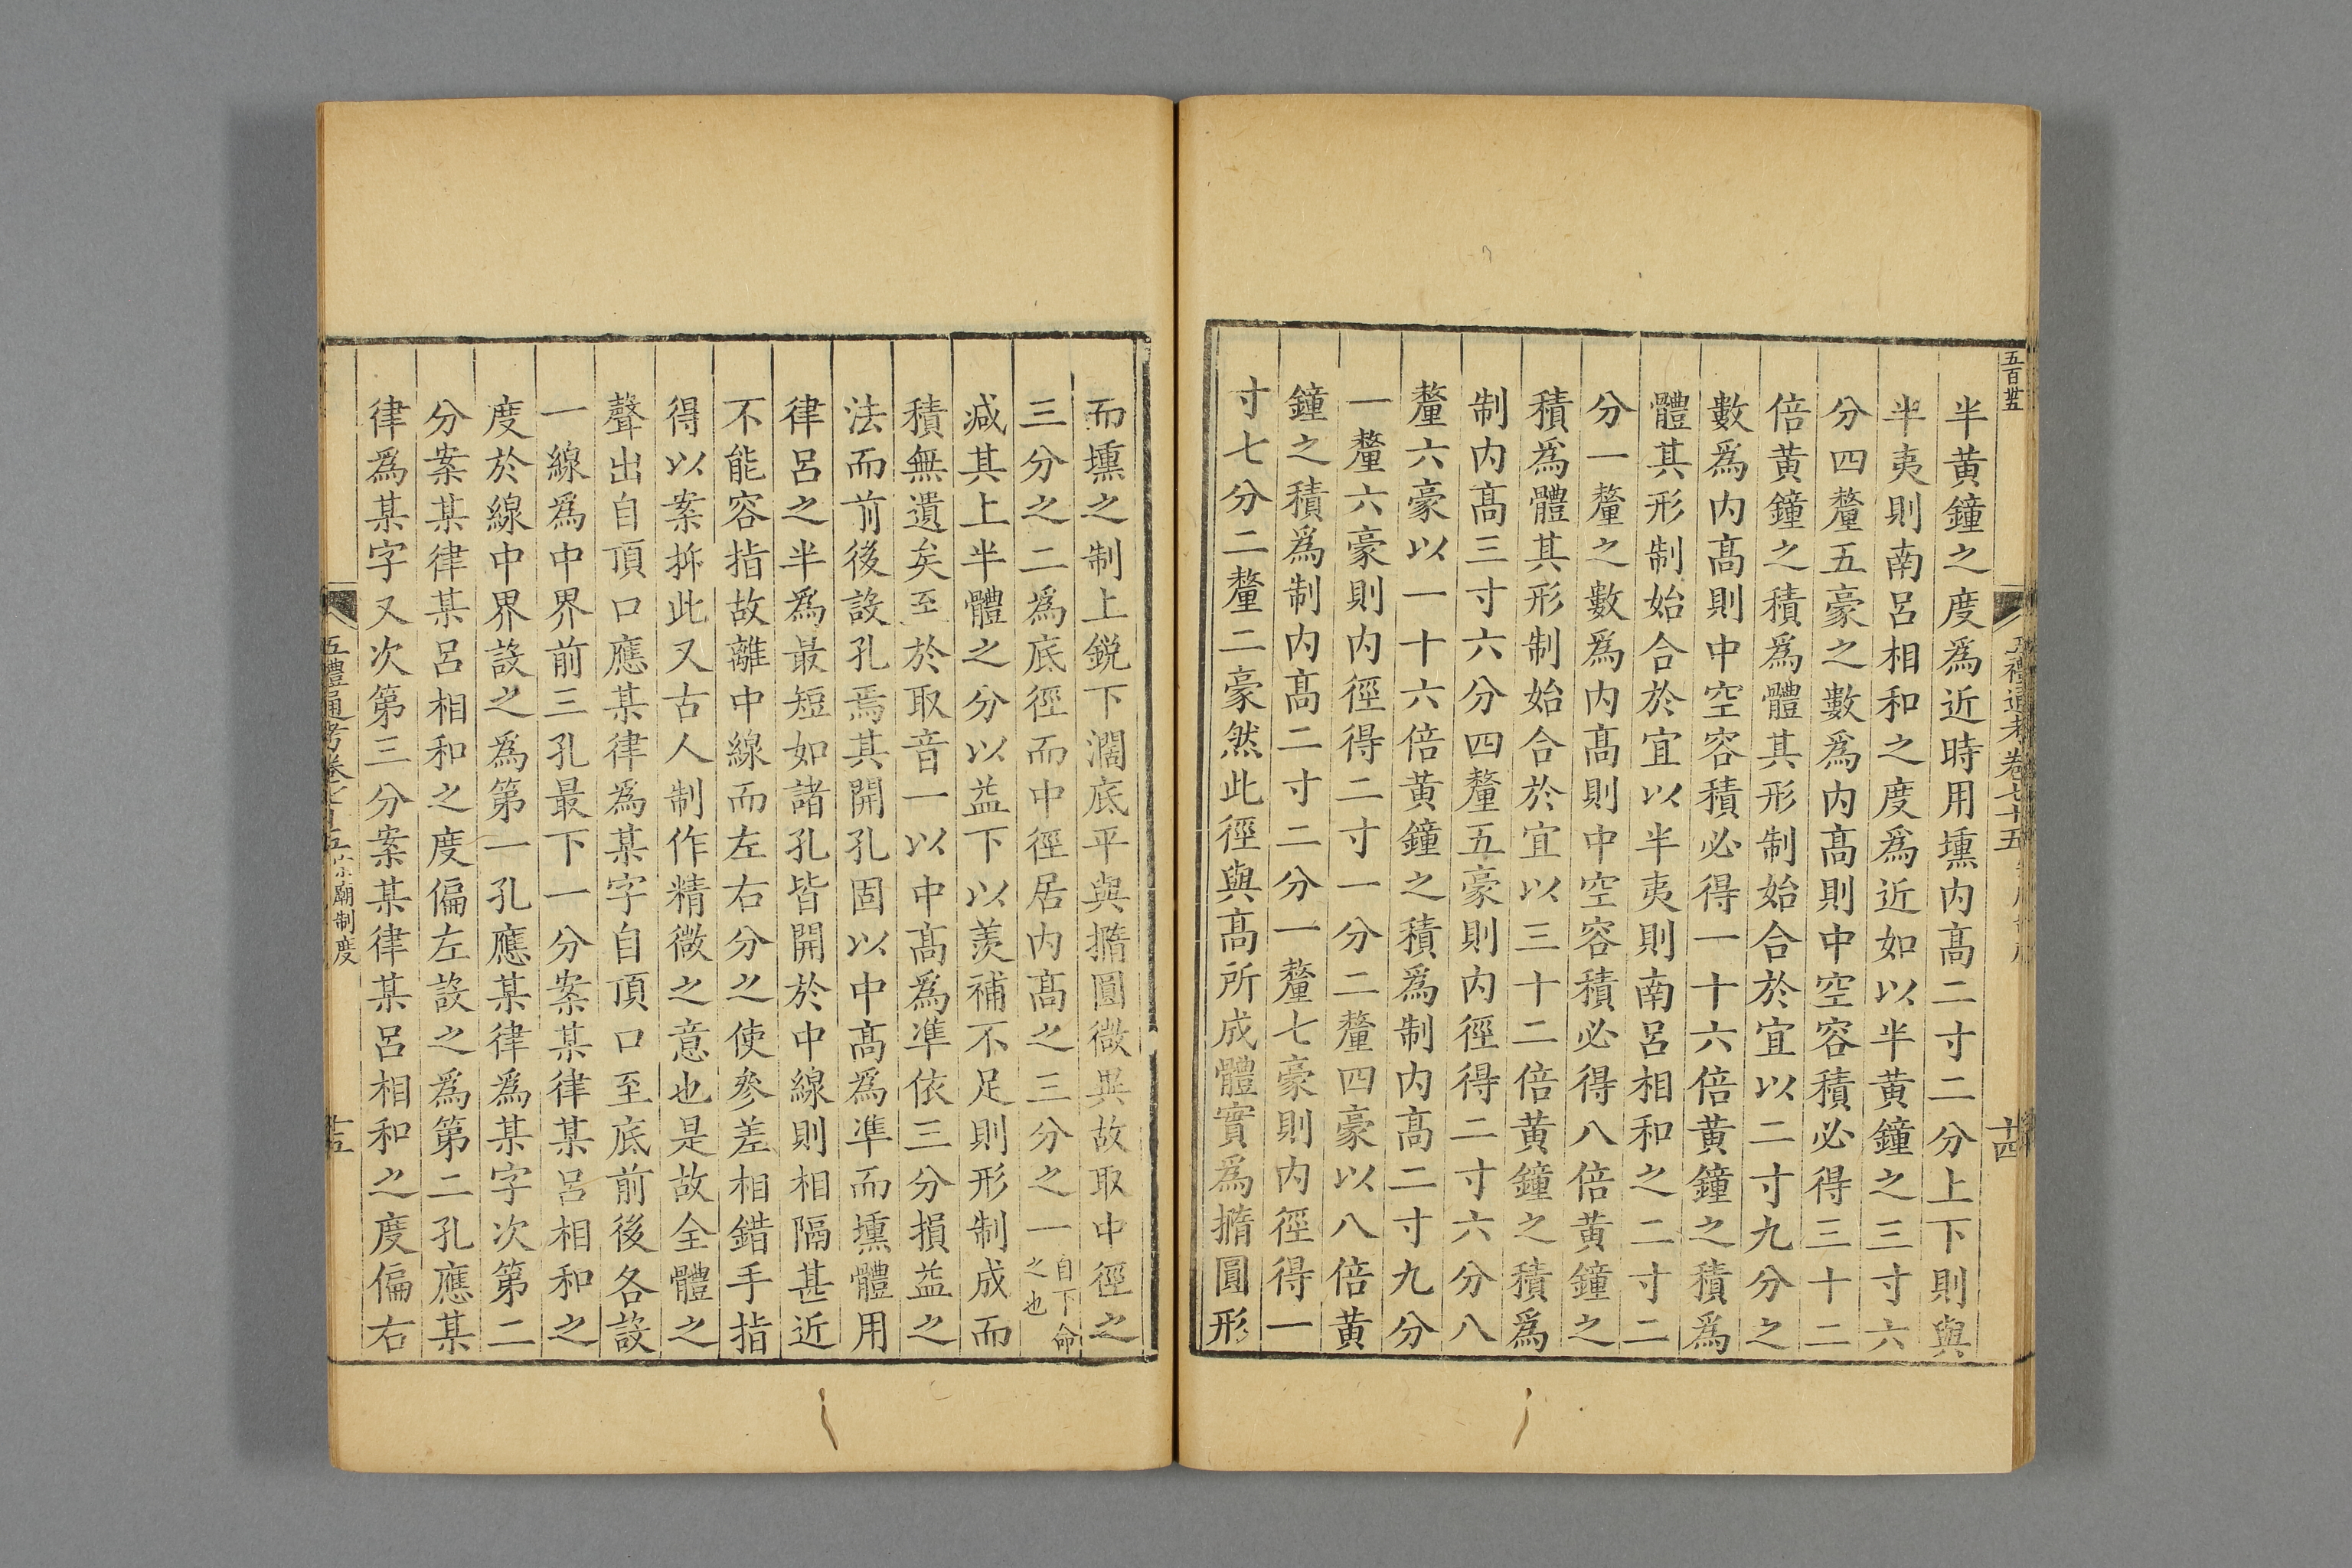 五百卅五
五禮通考卷七十五
十四
半黄鐘之度爲近時用壎内髙二寸二分上下則與
半夷則南呂相和之度爲近如以半黄鐘之三寸六
分四釐五豪之數爲内髙則中空容積必得三十二
倍黄鐘之積爲體其形制始合於宜以二寸九分之
數爲内髙則中空容積必得一十六倍黄鐘之積爲
體其形制始合於宜以半夷則南呂相和之二寸二
分一釐之數爲内髙則中空容積必得八倍黄鐘之
積爲體其形制始合於宜以三十二倍黄鐘之積爲
制内髙三寸六分四釐五豪則内徑得二寸六分八
釐六豪以一十六倍黄鐘之積爲制内髙二寸九分
一釐六豪則内徑得二寸一分二釐四豪以八倍黄
鐘之積爲制内髙二寸二分一釐七豪則内徑得一
寸七分二釐二豪然此徑與髙所成體實爲撱圓形
而壎之制上銳下濶底平與撱圓微異故取中徑之
三分之二爲底徑而中徑居内髙之三分之一自下命之也
減其上半體之分以益下以羨補不足則形制成而
積無遺矣至於取音一以中髙爲準依三分損益之
法而前後設孔焉其開孔固以中髙爲準而壎體用
律呂之半爲最短如諸孔皆開於中線則相隔甚近
不能容指故離中線而左右分之使參差相錯手指
得以案抑此又古人制作精微之意也是故全體之
聲出自頂口應某律爲某字自頂口至底前後各設
一線爲中界前三孔最下一分案某律某呂相和之
度於線中界設之爲第一孔應某律爲某字次第二
分案某律某呂相和之度偏左設之爲第二孔應某
律爲某字又次第三分案某律某呂相和之度偏右
五禮通考卷七十五 宗廟制度
十五